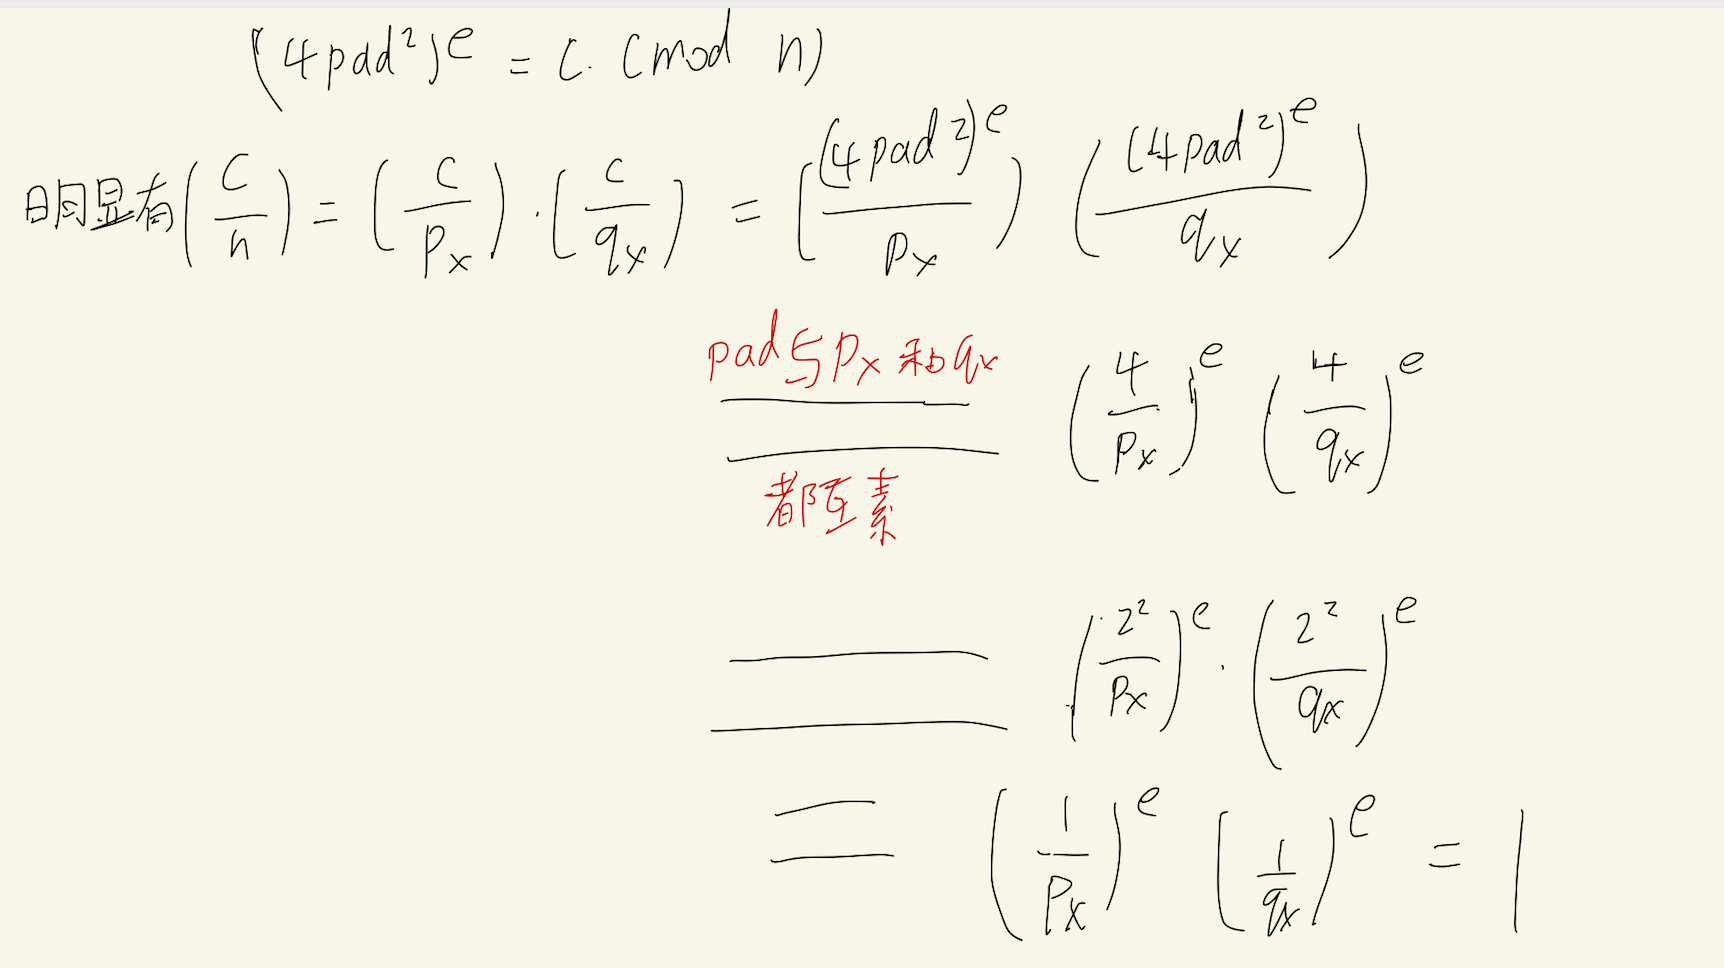 (4pad²)^e = C. (mod n)
明显有(C/n) = (C/p_x)·(C/q_x) = ((4pad²)^e/p_x) ((4pad²)^e/q_x)
pad与p_x和q_x
= (4/p_x)^e (4/q_x)^e
都互素
= (2²/p_x)^e·(2²/q_x)^e
= (1/p_x)^e (1/q_x)^e = 1